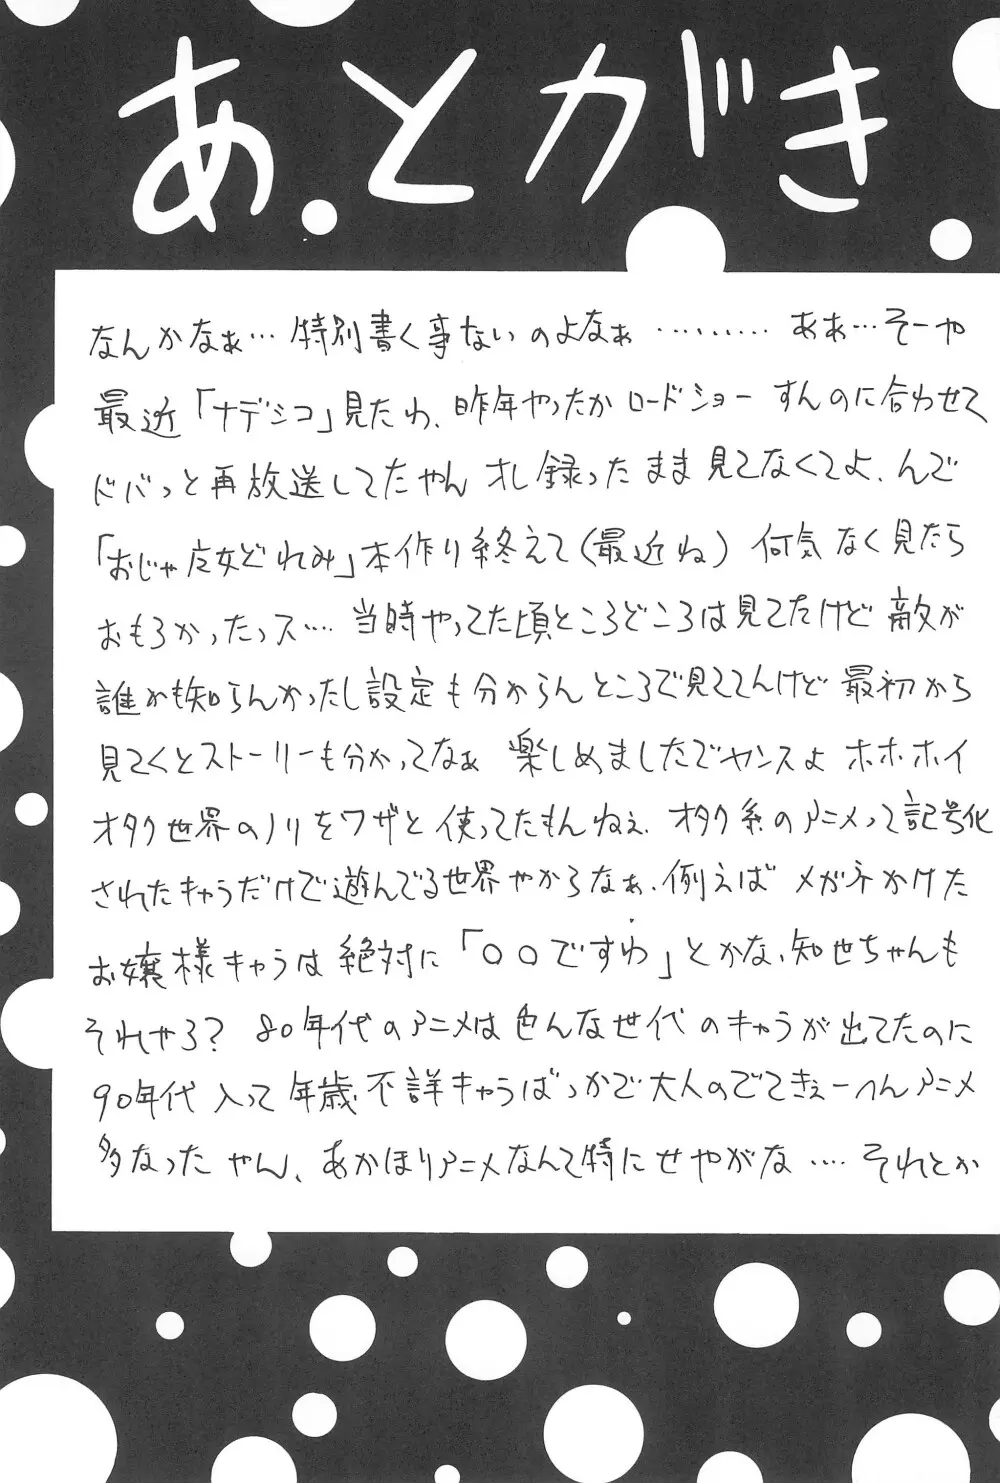 あとがき
なんかなぁ…特別書く事ないのよなぁ………ああ…そーや
最近「ナデシコ」見たわ、昨年やったか ロードショー すんのに合わせて
ドバっと再放送してたやん オレ録ったまま見てなくてよ、んで
「おじゃ魔女どれみ」本作り終えて(最近ね)何気なく見たら
おもろかったっス…当時やってた頃ところどころは見てたけど敵が
誰かも知らんかったし設定も分からんところで見ててんけど最初から
見てくとストーリーも分かってなぁ 楽しめましたでヤンスよ ホホホイ
オタク世界のノリをワザと使ってたもんねぇ、オタク系のアニメって記号化
されたキャラだけで遊んでる世界やからなぁ、例えばメガネかけた
お嬢様キャラは絶対に「○○ですわ」とかな、知世ちゃんも
それやろ?80年代のアニメは色んな世代のキャラが出てたのに
90年代入って年歳不詳キャラばっかで大人のでてきぇーへんアニメ
多なったやん、あかほりアニメなんて特にせやがな…それとか